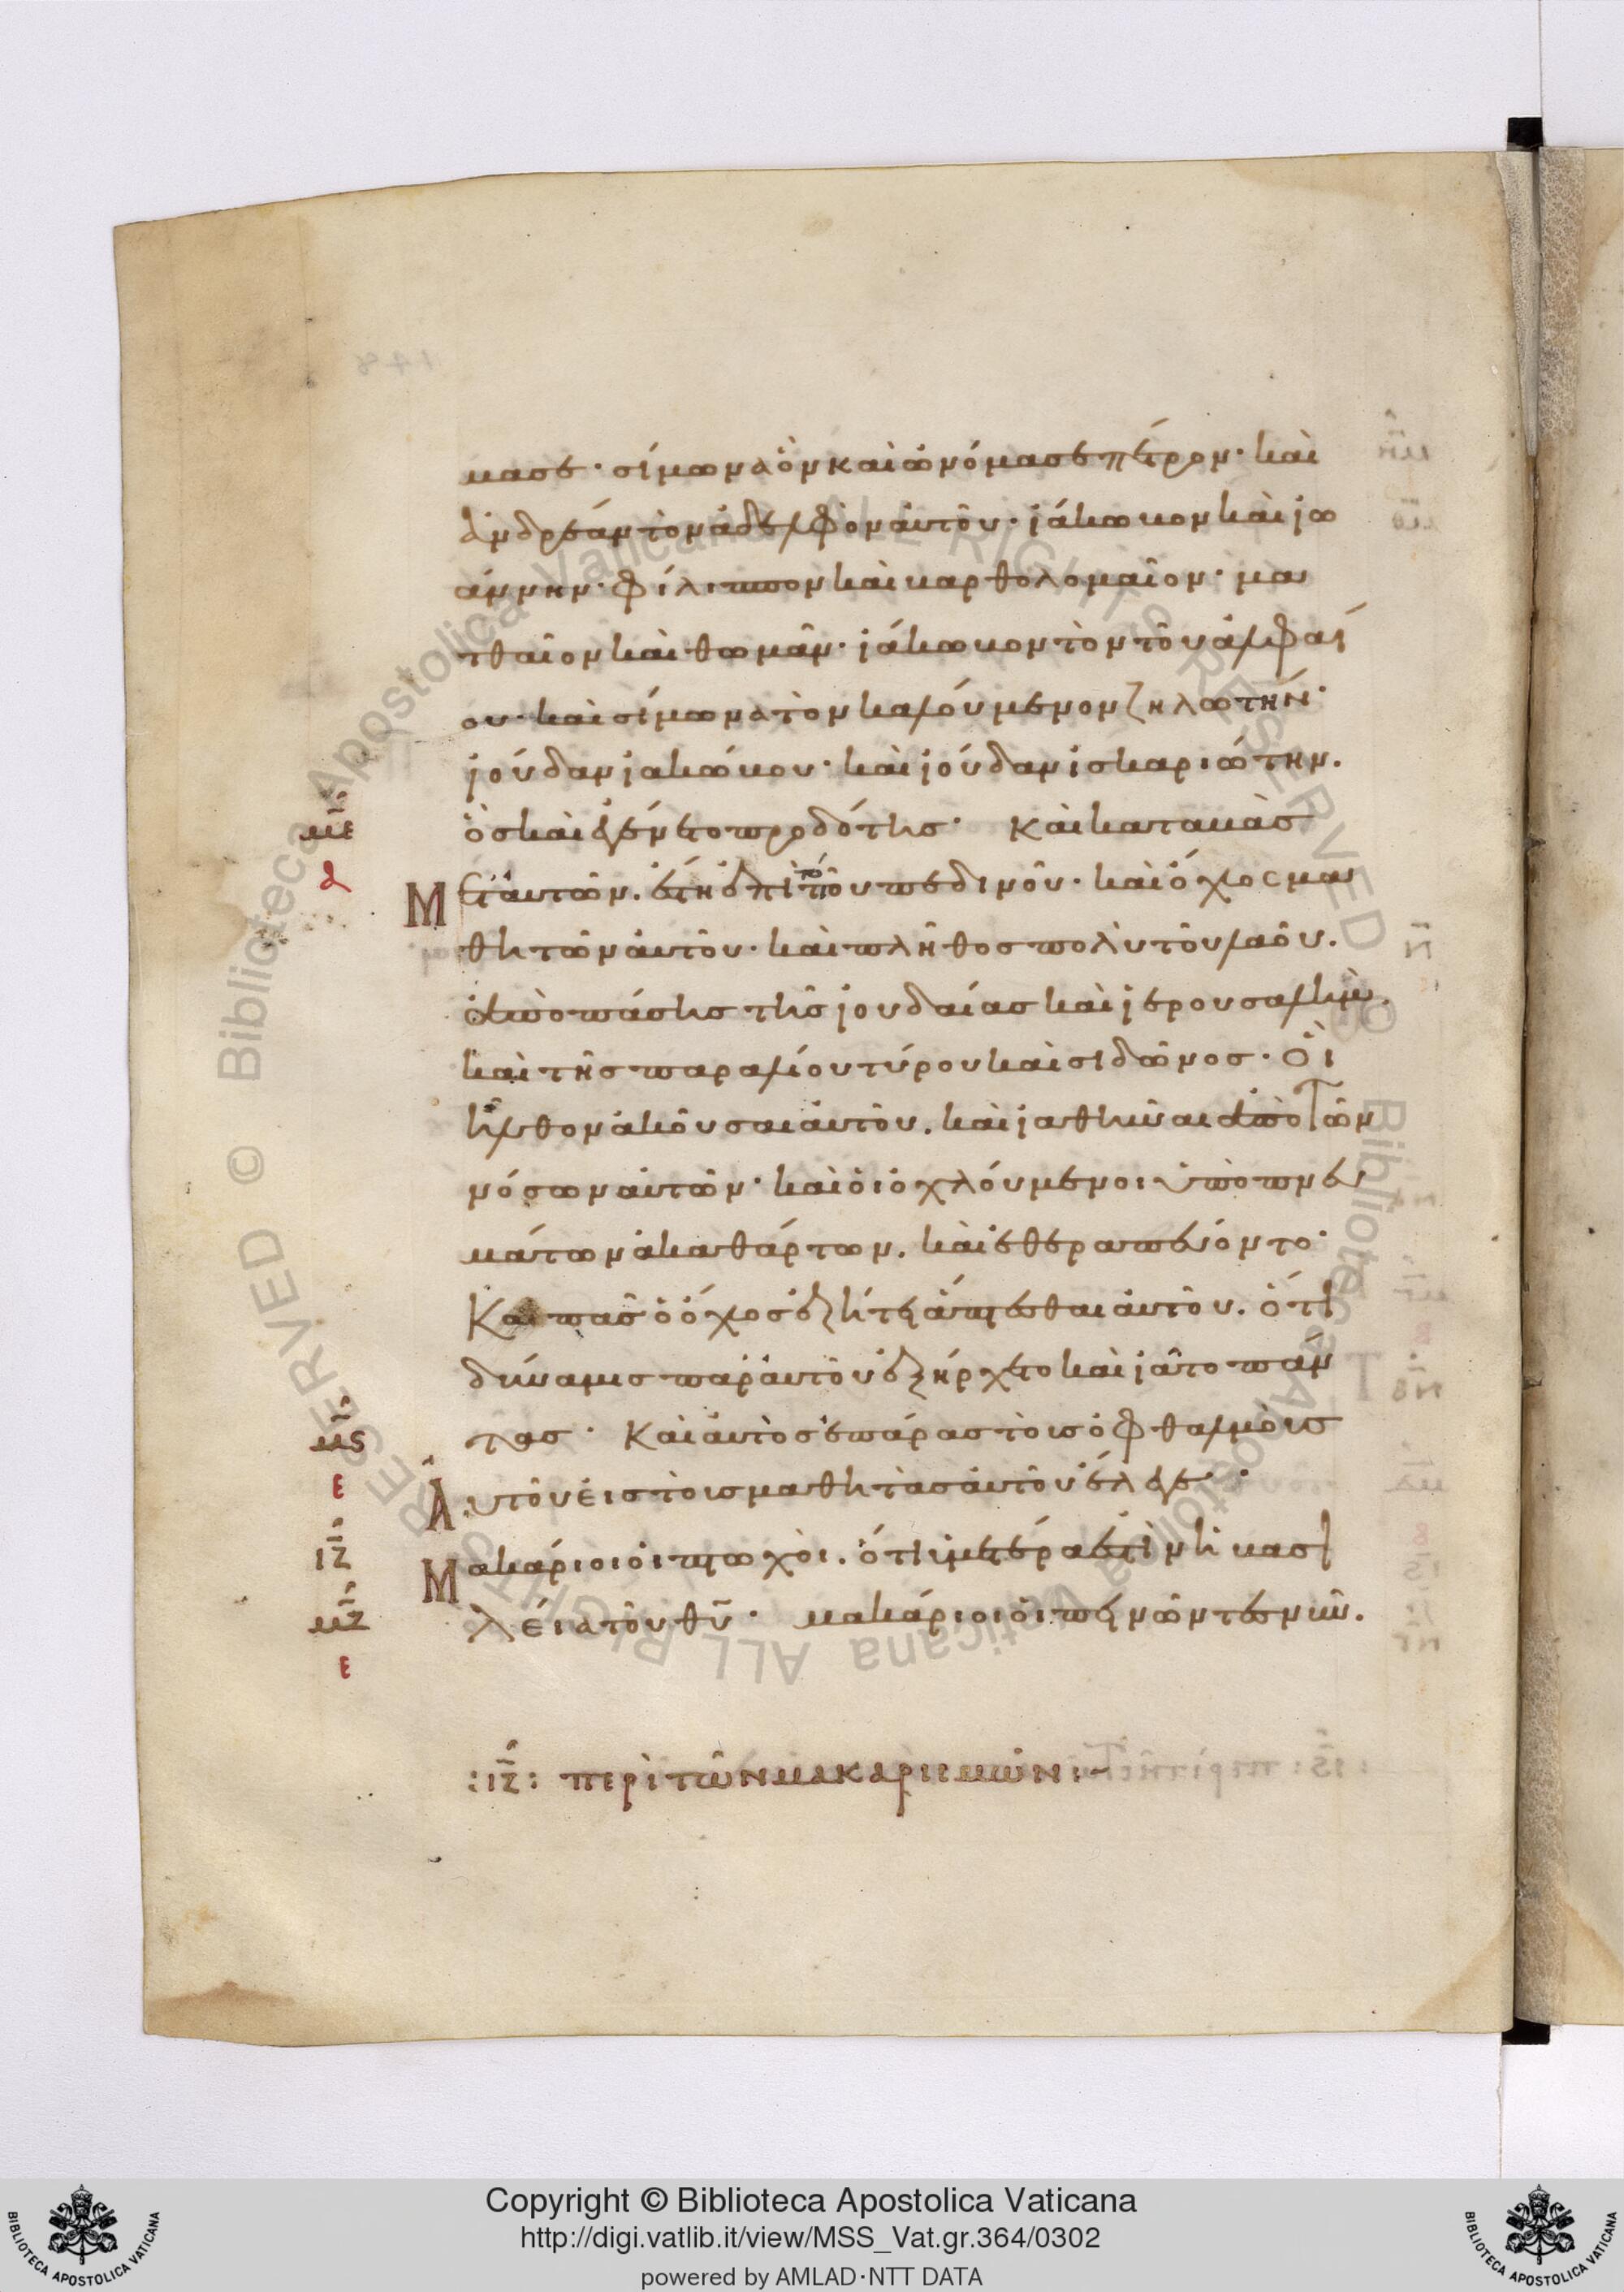 μασε· σίμωνα ὃν καὶ ὠνόμασε πέτρον· καὶ
ἀνδρέαν τὸν ἀδελφὸν ἀυτοῦ· ἰάκωβον καὶ ἰω
άννην· φίλιππον καὶ βαρθολομαῖον· μα
τθαῖον καὶ θωμᾶν· ἰάκωβον τὸν τοῦ ἀλφαί
ου· καὶ σίμωνα τὸν καλούμενον ζηλωτήν·
ἰούδαν ἰακώβου· καὶ ἰούδαν ἰσκαριώτην.
ὃσ καὶ ἐγένετο προδότησ· Καὶ καταβὰσ
με
δ
Μ ετ' ἀυτῶν. ἔστη ἐπὶ τόπου πεδινοῦ· καὶ ὄχλος μα
θητῶν ἀυτοῦ· καὶ πλῆθοσ πολὺ τοῦ λαοῦ.
ἀπὸ πάσησ τῆσ ἰουδαίασ καὶ ἰερουσαλὴμ.
καὶ τῆσ παραλίου τύρου καὶ σιδῶνοσ· Οἱ
ἦλθον ἀκοῦσαι ἀυτοῦ. καὶ ἰαθῆναι ἀπὸ τῶν
νόσων ἀυτῶν· καὶ ὁι ὀχλούμενοι ὑπὸ πνευ
μάτων ἀκαθάρτων. καὶ ἐθεραπεύοντο·
Καὶ πᾶσ ὁ ὄχλοσ ἐζήτει ἅπτεσθαι ἀυτοῦ. ὅτι
δύναμισ παρ' ἀυτοῦ ἐξήρχετο καὶ ἰᾶτο πάν
τασ· Καὶ ἀυτὸσ ἐπάρασ τοὺσ ὀφθαλμοὺσ
μς
ε
Ἀ υτοῦ ἐισ τοὺσ μαθητὰσ ἀυτοῦ ἔλεγε·
ιζ
Μ ακάριοι ὁι πτωχοὶ. ὅτι ὑμετέρα ἐστὶν ἡ βασι
μζ
λεία τοῦ θῦ· μακάριοι ὁι πεινῶντεσ νῦν.
ε
:ιζ: περὶ τῶν μακαρισμῶν:~
Copyright © Biblioteca Apostolica Vaticana
http://digi.vatlib.it/view/MSS_Vat.gr.364/0302
powered by AMLAD·NTT DATA